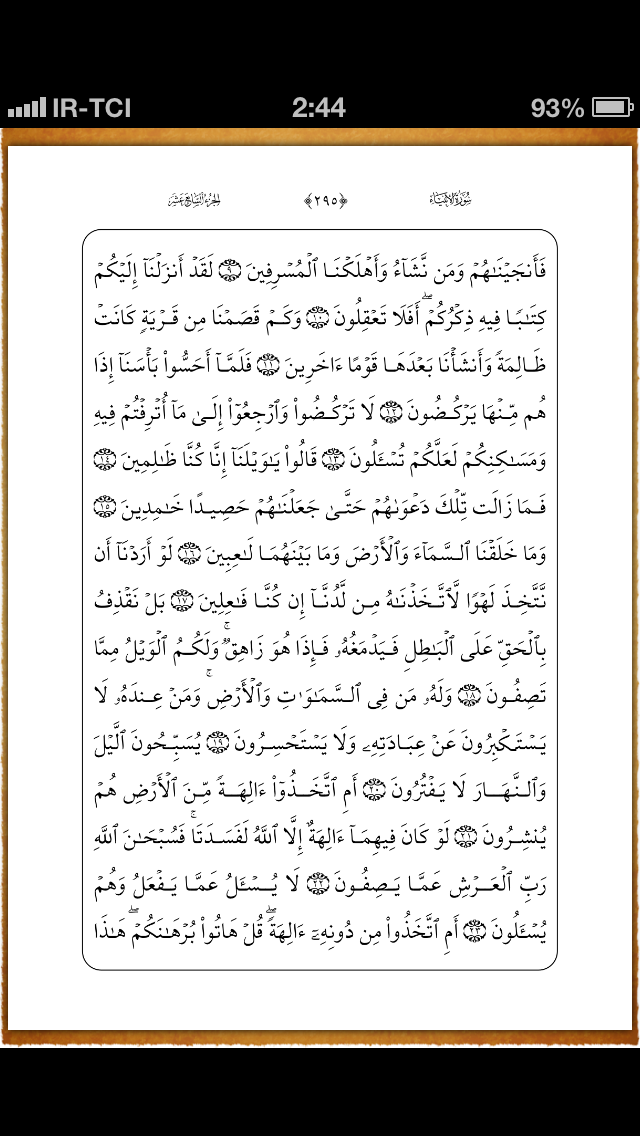 IR-TCI 2:44 93%
سُورَةُ الأَنبِيَاء ﴿٢٩٥﴾ الجُزءُ السَّابِعَ عَشَرَ
فَأَنجَيۡنَٰهُمۡ وَمَن نَّشَآءُ وَأَهۡلَكۡنَا ٱلۡمُسۡرِفِينَ ٩ لَقَدۡ أَنزَلۡنَآ إِلَيۡكُمۡ
كِتَٰبٗا فِيهِ ذِكۡرُكُمۡۖ أَفَلَا تَعۡقِلُونَ ١٠ وَكَمۡ قَصَمۡنَا مِن قَرۡيَةٖ كَانَتۡ
ظَالِمَةٗ وَأَنشَأۡنَا بَعۡدَهَا قَوۡمًا ءَاخَرِينَ ١١ فَلَمَّآ أَحَسُّواْ بَأۡسَنَآ إِذَا
هُم مِّنۡهَا يَرۡكُضُونَ ١٢ لَا تَرۡكُضُواْ وَٱرۡجِعُوٓاْ إِلَىٰ مَآ أُتۡرِفۡتُمۡ فِيهِ
وَمَسَٰكِنِكُمۡ لَعَلَّكُمۡ تُسۡـَٔلُونَ ١٣ قَالُواْ يَٰوَيۡلَنَآ إِنَّا كُنَّا ظَٰلِمِينَ ١٤
فَمَا زَالَت تِّلۡكَ دَعۡوَىٰهُمۡ حَتَّىٰ جَعَلۡنَٰهُمۡ حَصِيدًا خَٰمِدِينَ ١٥
وَمَا خَلَقۡنَا ٱلسَّمَآءَ وَٱلۡأَرۡضَ وَمَا بَيۡنَهُمَا لَٰعِبِينَ ١٦ لَوۡ أَرَدۡنَآ أَن
نَّتَّخِذَ لَهۡوٗا لَّٱتَّخَذۡنَٰهُ مِن لَّدُنَّآ إِن كُنَّا فَٰعِلِينَ ١٧ بَلۡ نَقۡذِفُ
بِٱلۡحَقِّ عَلَى ٱلۡبَٰطِلِ فَيَدۡمَغُهُۥ فَإِذَا هُوَ زَاهِقٞۚ وَلَكُمُ ٱلۡوَيۡلُ مِمَّا
تَصِفُونَ ١٨ وَلَهُۥ مَن فِي ٱلسَّمَٰوَٰتِ وَٱلۡأَرۡضِۚ وَمَنۡ عِندَهُۥ لَا
يَسۡتَكۡبِرُونَ عَنۡ عِبَادَتِهِۦ وَلَا يَسۡتَحۡسِرُونَ ١٩ يُسَبِّحُونَ ٱلَّيۡلَ
وَٱلنَّهَارَ لَا يَفۡتُرُونَ ٢٠ أَمِ ٱتَّخَذُوٓاْ ءَالِهَةٗ مِّنَ ٱلۡأَرۡضِ هُمۡ
يُنشِرُونَ ٢١ لَوۡ كَانَ فِيهِمَآ ءَالِهَةٌ إِلَّا ٱللَّهُ لَفَسَدَتَاۚ فَسُبۡحَٰنَ ٱللَّهِ
رَبِّ ٱلۡعَرۡشِ عَمَّا يَصِفُونَ ٢٢ لَا يُسۡـَٔلُ عَمَّا يَفۡعَلُ وَهُمۡ
يُسۡـَٔلُونَ ٢٣ أَمِ ٱتَّخَذُواْ مِن دُونِهِۦٓ ءَالِهَةٗۖ قُلۡ هَاتُواْ بُرۡهَٰنَكُمۡۖ هَٰذَا